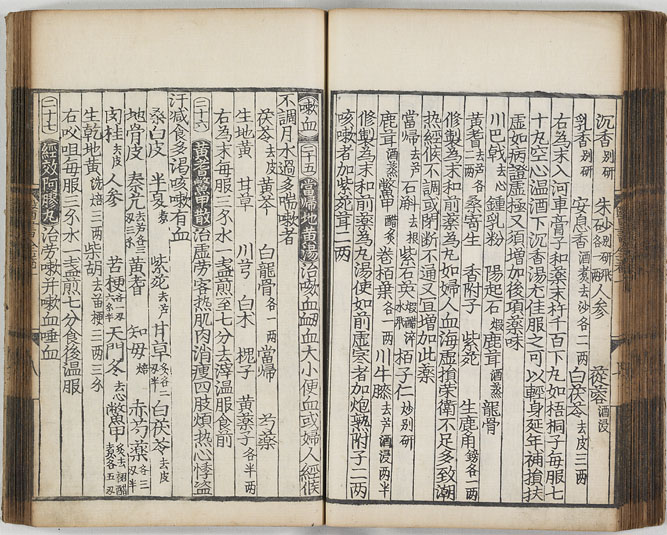 沉香別研 朱砂別研飛各一兩 人参 蓯蓉酒浸
乳香別研 安息香酒煮去沙各二兩 白茯苓去皮三兩
右為末入河車膏子和藥末杵千百下丸如梧桐子每服七
十丸空心温酒下沉香湯尤佳服之可以輕身延年補損扶
虛如病證虛極又須增加後項藥味
川巴戟去心 鍾乳粉 陽起石煅 鹿茸酒蒸 龍骨
黃耆去芦各二兩 桑寄生 香附子 紫菀 生鹿角鎊各一兩
修製為末和前藥為丸如婦人血海虛損榮衛不足多致潮
熱經候不調或閉断不通又宜增加此藥
當帰去芦 石斛去根 紫石英煅醋淬水飛 栢子仁炒別研
鹿茸酒蒸 鱉甲醋炙 卷栢葉各一兩 川牛膝去芦酒浸兩半
修製為末和前藥為丸湯使如前虛寒者加炮熟附子二兩
咳嗽者加紫菀茸二兩
嗽血 二十五 當帰地黄湯 治嗽血衂血大小便血或婦人經候
不調月水過多喘嗽者
茯苓去皮 黄芩 白龍骨各一兩 當帰 芍藥
生地黄 甘草 川芎 白术 槐子 黄藥子各半兩
右為末每服三分水一盞煎至七分去滓温服食前
二十六 黄耆鱉甲散 治虛劳客热肌肉消瘦四肢煩热心悸盗
汗減食多渴咳嗽有血
桑白皮 半夏 紫菀去芦 甘草炙各二兩半 白茯苓去皮
地骨皮 秦艽去芦各三兩三分 黄耆 知母焙 赤芍藥各三兩半
肉桂去皮 人参 苦梗 天門冬去心 鱉甲
生乾地黄洗焙三兩 柴胡去苗梗三兩三分
右㕮咀每服三分水一盞煎七分食後温服
二十七 經效阿膠丸 治劳嗽并嗽血唾血